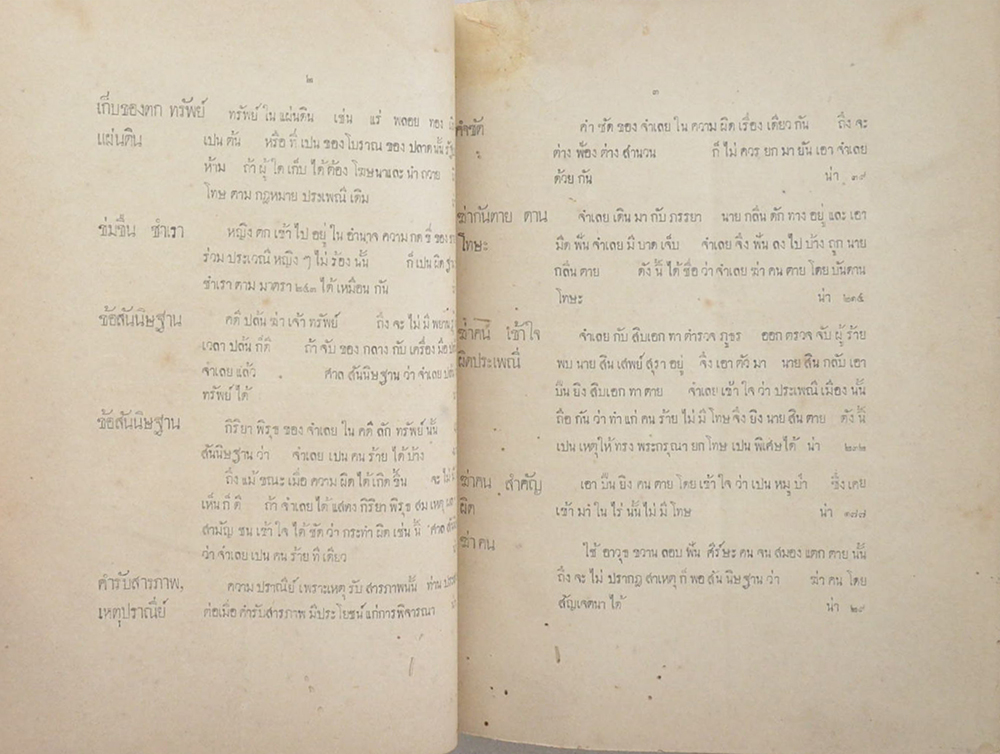 ๒
เก็บของตก ทรัพย์ ทรัพย์ ใน แผ่นดิน เช่น แร่ พลอย ทอง
แผ่นดิน เปน ต้น หรือ ที่ เปน ของ โบราณ ของ ปลาด นั้น
ห้าม ถ้า ผู้ ใด เก็บ ได้ ต้อง โฆษนาและ นำ ถวาย
โทษ ตาม กฎหมาย ประเพณี เดิม
ข่มขืน ชำเรา หญิง ตก เข้า ไป อยู่ ใน อำนาจ ความ กด ขี่ ของ
ร่วม ประเวณี หญิง ๆ ไม่ ร้อง นั้น ก็ เปน ผิด
ชำเรา ตาม มาตรา ๒๔๓ ได้ เหมือน กัน
ข้อสันนิษฐาน คดี ปล้น ฆ่า เจ้า ทรัพย์ ถึง จะ ไม่ มี พยาน
เวลา ปล้น ก็ดี ถ้า จับ ของ กลาง กับ เครื่อง มือ
จำเลย แล้ว ศาล สันนิษฐาน ว่า จำเลย
ทรัพย์ ได้
ข้อสันนิษฐาน กิริยา พิรุธ ของ จำเลย ใน คดี ลัก ทรัพย์ นั้น
สันนิษฐาน ว่า จำเลย เปน คน ร้าย ได้ บ้าง
ถึง แม้ ขณะ เมื่อ ความ ผิด ได้ เกิด ขึ้น จะ ไม่
เห็น ก็ ดี ถ้า จำเลย ได้ แสดง กิริยา พิรุธ สม เหตุ
สามัญ ชน เข้า ใจ ได้ ชัด ว่า กระทำ ผิด เช่น นี้ ศาล
ว่า จำเลย เปน คน ร้าย ที เดียว
คำรับสารภาพ, ความ ปราณีย์ เพราะเหตุ รับ สารภาพนั้น ท่าน
เหตุปราณีย์ ต่อเมื่อ คำรับสารภาพ มีประโยชน์ แก่การพิจารณา
๓
คำซัด คำ ซัด ของ จำเลย ใน ความ ผิด เรื่อง เดียว กัน ถึง จะ
ต่าง ฟ้อง ต่าง สำนวน ก็ ไม่ ควร ยก มา ยัน เอา จำเลย
ด้วย กัน น่า ๓๙
ฆ่ากันตาย ดาน จำเลย เดิน มา กับ ภรรยา นาย กลิ่น ดัก ทาง อยู่ และ เอา
โทษะ มีด ฟัน จำเลย มี บาด เจ็บ จำเลย จึ่ง ฟัน ลง ไป บ้าง ถูก นาย
กลิ่น ตาย ดัง นี้ ได้ ชื่อ ว่า จำเลย ฆ่า คน ตาย โดย บันดาน
โทษะ น่า ๒๓๕
ฆ่าคน เข้าใจ จำเลย กับ สิบเอก ทา ตำรวจ ภูธร ออก ตรวจ จับ ผู้ ร้าย
ผิดประเพณี พบ นาย สิน เสพย์ สุรา อยู่ จึ่ง เอา ตัว มา นาย สิน กลับ เอา
ปืน ยิง สิบเอก ทา ตาย จำเลย เข้า ใจ ว่า ประเพณี เมือง นั้น
ถือ กัน ว่า ทำ แก่ คน ร้าย ไม่ มี โทษ จึ่ง ยิง นาย สิน ตาย ดัง นี้
เปน เหตุให้ ทรง พระกรุณา ยก โทษ เปน พิเศษได้ น่า ๒๓๒
ฆ่าคน สำคัญ เอา ปืน ยิง คน ตาย โดย เข้า ใจ ว่า เปน หมู ป่า ซึ่ง เคย
ผิด เข้า มา ใน ไร่ นั้น ไม่ มี โทษ น่า ๑๗๗
ฆ่า คน ใช้ อาวุธ ขวาน ลอบ ฟัน ศีร์ษะ คน จน สมอง แตก ตาย นั้น
ถึง จะ ไม่ ปรากฏ สาเหตุ ก็ พอ สัน นิษฐาน ว่า ฆ่า คน โดย
สัญเจตนา ได้ น่า ๒๙